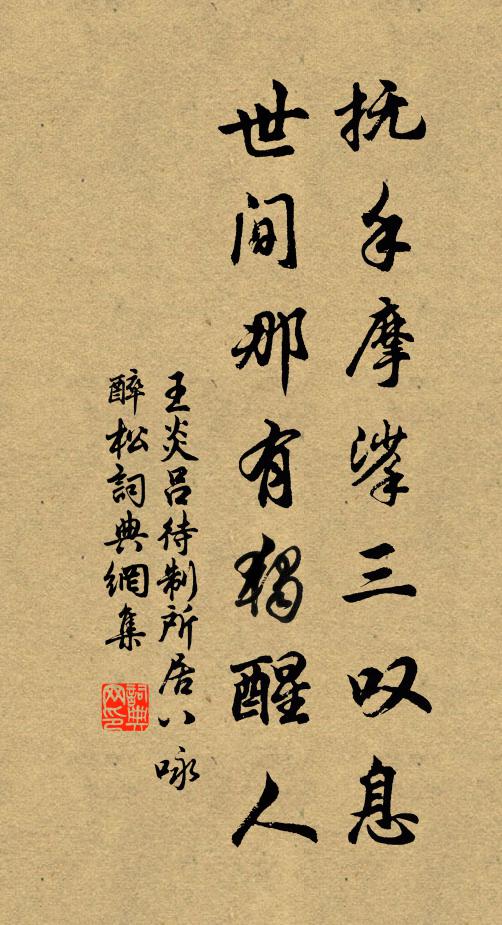 抚手摩挲三叹息
世间那有独醒人
王炎吕待制所居八咏
醉松詞典網集
詞典网印